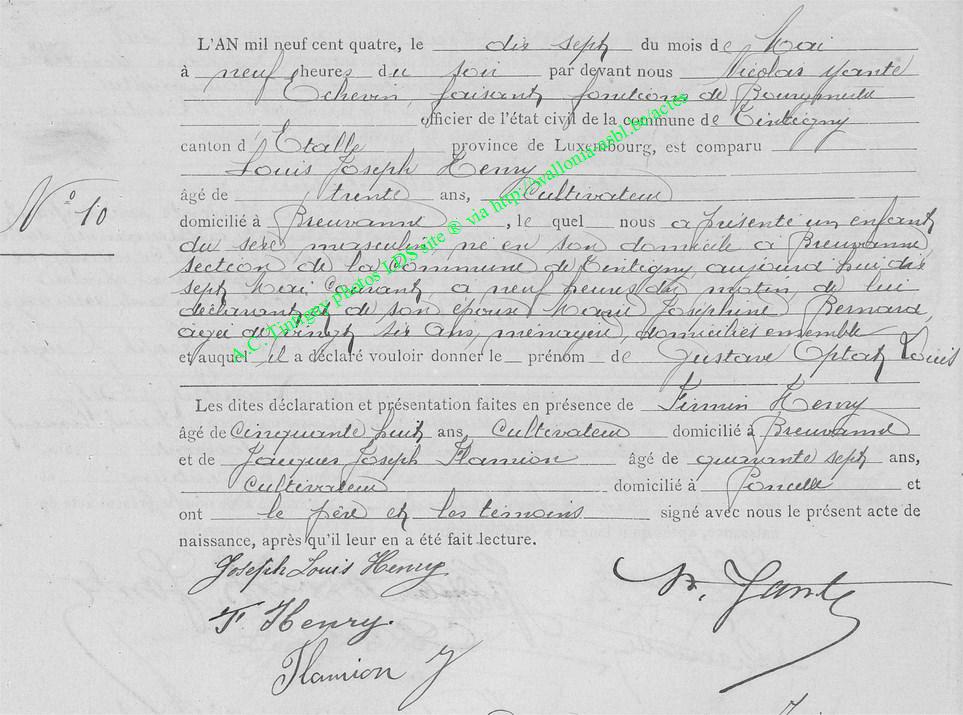 L'AN mil neuf cent quatre, le dix sept du mois de Mai
à neuf heures du soir par devant nous Nicolas Yante
Echevin faisant fonctions de Bourgmestre
officier de l'état civil de la commune de Tintigny
canton d'Etalle province de Luxembourg, est comparu
Louis Joseph Henry
âgé de trente ans, Cultivateur
N° 10
domicilié à Breuvanne, le quel nous a présenté un enfant
du sexe masculin né en son domicile a Breuvanne
section de la commune de Tintigny aujourd'hui dix
sept Mai courant a neuf heures du matin de lui
déclarant et de son épouse Marie Joséphine Bernard,
agée de vingt six ans, ménagère, domiciliés ensemble
et auquel il a déclaré vouloir donner le prénom de Gustave Optat Louis
Les dites déclaration et présentation faites en présence de Firmin Henry
âgé de Cinquante huit ans Cultivateur domicilié à Breuvanne
et de Jacques Joseph Flamion âgé de quarante sept ans,
Cultivateur domicilié à Poncelle et
ont le père et les témoins signé avec nous le présent acte de
naissance, après qu'il leur en a été fait lecture.
Joseph Louis Henry
N. Yante
F Henry.
Flamion J
A.C. Tintigny photos LDS site ® via http://wallonia-asbl.be/actes